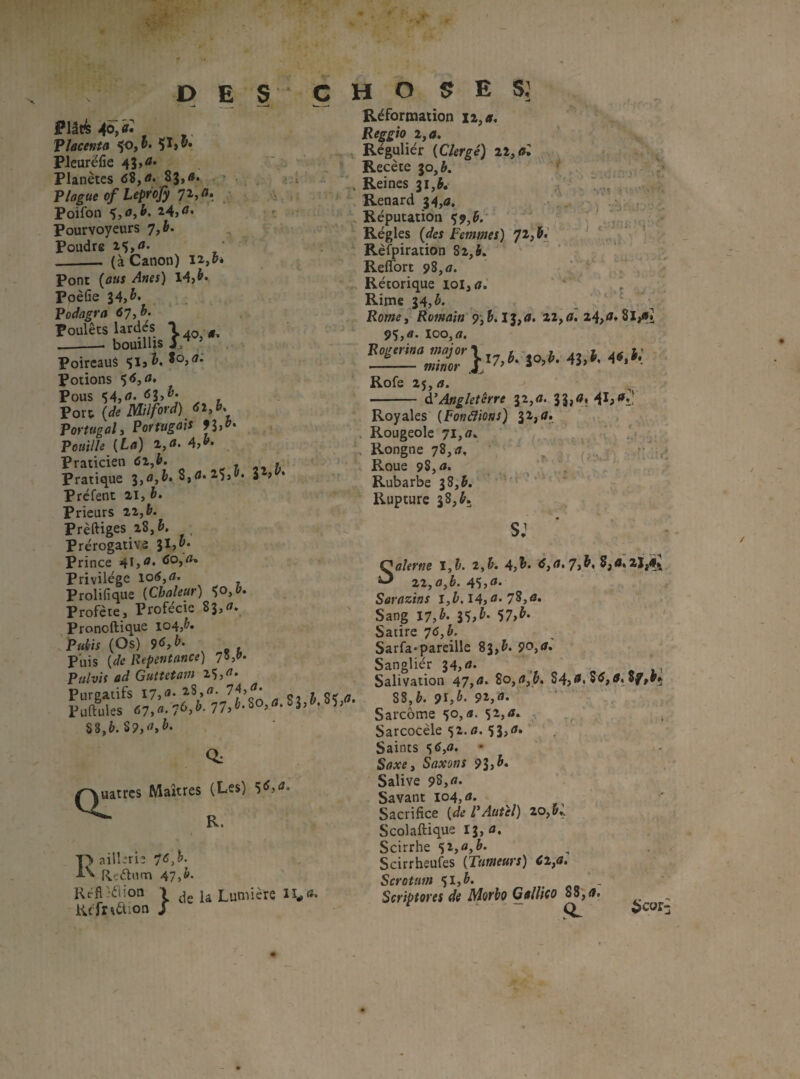 DES CHOSES.
Plâtés 40, a.
Placenta 50, b. 51, b.
Pleuréfie 43, a.
Planètes 68, a. 83, a.
Plague of Leprofy 72, a.
Poifon 5, a, b. 24, a.
Pourvoyeurs 7, b.
Poudre 25, a.
——— (à Canon) 12, b.
Pont (aus Anes) 14, b.
Poèfie 34, b.
Podagra 67, b.
Poulêts lardés } 40, a.
——— bouillis
Poireaus 51, b. 80, a.
Potions 56, a.
Pous 54, a. 63, b.
Port (de Milford) 62, b.
Portugal, Portugais 93, b.
Pouille (La) 2, a. 4, b.
Praticien 62, b.
Pratique 3, a, b. 8, a. 25, b. 32, b.
Préfent 21, b.
Prieurs 22, b.
Prèftiges 28, b.
Prérogative 31, b.
Prince 41, a. 60, a.
Privilége 106, a.
Prolifique (Chaleur) 50, b.
Profète, Profécie 83, a.
Pronoftique 104, b.
Pubis (Os) 96, b.
Puis (de Repentance) 78, b.
Pulvis ad Guttetam 25, a.
Purgatifs 17, a. 28, a. 74, a.
Puftules 67, a. 76, b. 77, b. 80, a. 83, b. 85, a.
88, b. 89, a, b.
Q.
Quatres Maîtres (Les) 56, a.
R.
Raillerie 76, b.
Rectum 47, b.
Réfléction } de la Lumière 11, a.
Réfraction
Réformation 12, a.
Reggio 2, a.
Réguliér (Clergé) 22, a.
Recète 30, b.
Reines 31, b.
Renard 34, a.
Réputation 59, b.
Régles (des Femmes) 72, b.
Rèfpiration 82, b.
Reffort 98, a.
Rétorique 101, a.
Rime 34, b.
Rome, Romain 9, b. 13, a. 22, a. 24, a. 81, a.
95, a. 100, a.
Rogerina major } 17, b. 30, b. 43, b. 46, b.
——— minor
Rofe 25, a.
——— d'Angletêrre 32, a. 33, a. 41, a.
Royales (Fonctions) 32, a.
Rougeole 71, a.
Rongne 78, a.
Roue 98, a.
Rubarbe 38, b.
Rupture 38, b.
S.
Salerne 1, b. 2, b. 4, b. 6, a. 7, b. 8, a. 21, a.
22, a, b. 45, a.
Sarazins 1, b. 14, a. 78, a.
Sang 17, b. 35, b. 57, b.
Satire 76, b.
Sarfa-pareille 83, b. 90, a.
Sangliér 34, a.
Salivation 47, a. 80, a, b. 84, a. 86, a. 87, b.
88, b. 91, b. 92, a.
Sarcôme 50, a. 52, a.
Sarcocèle 52. a. 53, a.
Saints 56, a.
Saxe, Saxons 93, b.
Salive 98, a.
Savant 104, a.
Sacrifice (de l'Autèl) 20, b.
Scolaftique 13, a.
Scirrhe 52, a, b.
Scirrheufes (Tumeurs) 62, a.
Scrotum 51, b.
Scriptores de Morbo Gallico 88, a.
Q Scor-